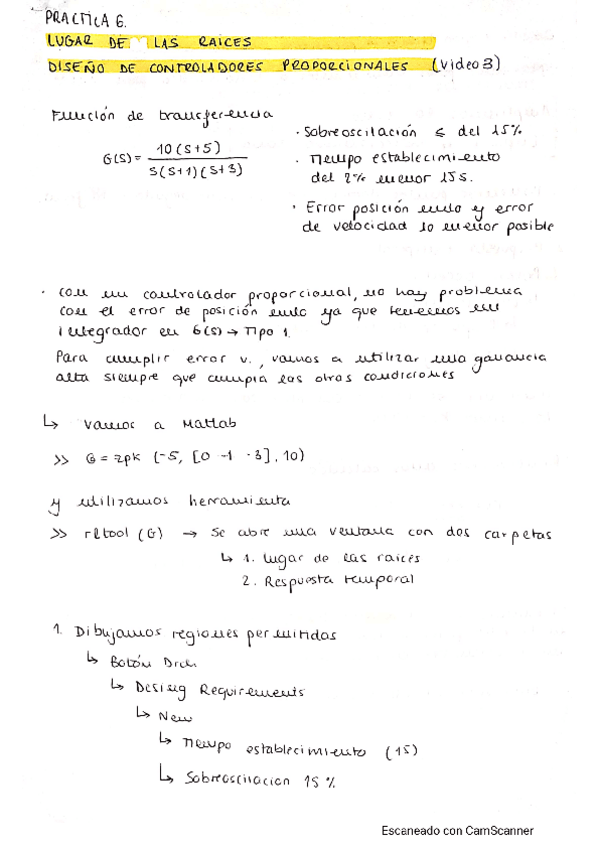 PRACTICA 6.
LUGAR DE LAS RAICES
DISEÑO DE CONTROLADORES PROPORCIONALES (Video 3)
Función de transferencia
G(s) = 10(s+5) / s(s+1)(s+3)
· Sobreoscilación ≤ del 15%
· Tiempo establecimiento
del 2% menor 15s.
· Error posición nulo y error
de velocidad lo menor posible
· Con un controlador proporcional, no hay problema
con el error de posición nulo ya que tenemos un
integrador en G(s) → Tipo 1.
Para cumplir error v., vamos a utilizar una ganancia
alta siempre que cumpla las otras condiciones
↳ Vamos a Matlab
>> G = zpk (-5, [0 -1 -3], 10)
y utilizamos herramienta
>> rltool (G) → se abre una ventana con dos carpetas
↳ 1. Lugar de las raices
2. Respuesta temporal
1. Dibujamos regiones permitidas
↳ Botón Drch
↳ Desing Requirements
↳ New
↳ Tiempo establecimiento (15)
↳ Sobreoscilacion 15%
Escaneado con CamScanner